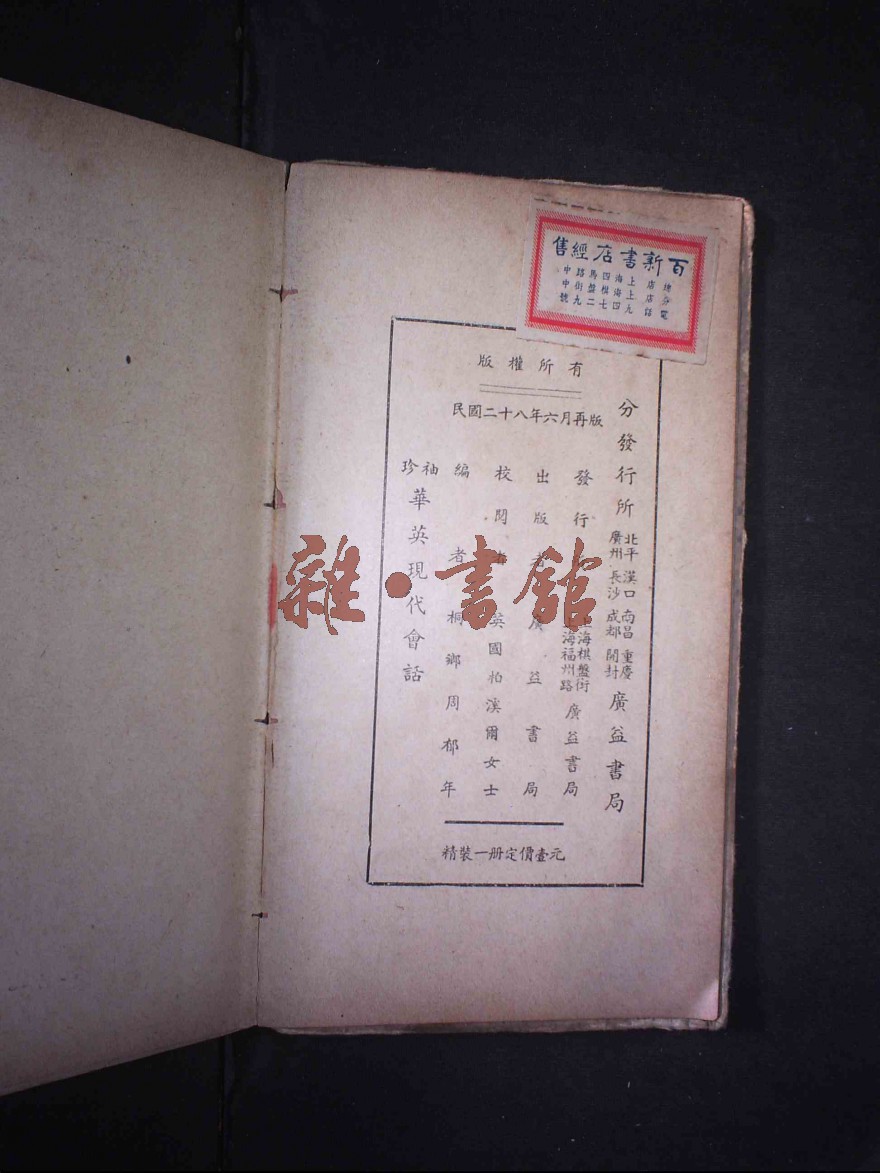 百新書店經售
總店 上海四馬路中
分店 上海棋盤街中
電話 九四七二九號
版權所有
民國二十八年六月再版
分發行所 北平 漢口 南昌 重慶 廣州 長沙 成都 開封 廣益書局
發行 上海棋盤街 上海福州路 廣益書局
出版者 廣益書局
校閱者 英國柏溪爾女士
編者 桐鄉周郁年
袖珍 華英現代會話
精裝一册定價壹元
雜·書館